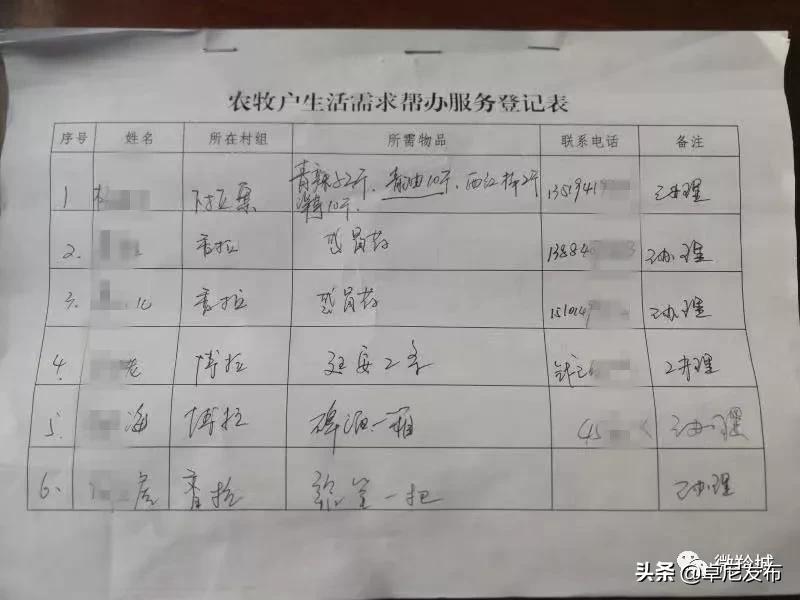 农牧户生活需求帮办服务登记表
序号 姓名 所在村组 所需物品 联系电话 备注
1 下拉集 青辣子2斤、青油10斤、西红柿2斤 13519419 已办理
10斤
2. 香拉 感冒药 13884 3 已办理
3. 香拉 感冒药 151014 已办理
4. 老 博拉 延安2条 已办理
5. 海 博拉 啤酒一箱 45 已办理
6. 香拉 一把 已办理
微羚城
头条 @卓尼发布